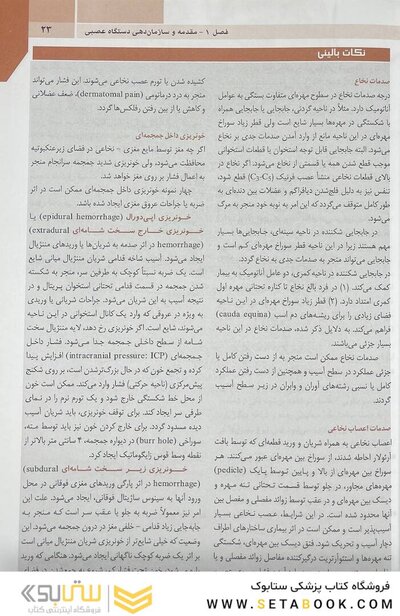 فصل ۱ - مقدمه و سازمان‌دهی دستگاه عصبی
۲۳
نکات بالینی
صدمات نخاع
درجه صدمات نخاع در سطوح مهره‌ای متفاوت بستگی به عوامل
آناتومیک دارد. مثلاً در ناحیه گردنی، جابجایی یا جابجایی همراه
با شکستگی در مهره‌ها بسیار شایع است ولی قطر زیاد سوراخ
مهره‌ای در این ناحیه مانع از وارد آمدن صدمات جدی بر نخاع
می‌شود. البته جابجایی قابل توجه استخوان یا قطعات استخوانی
موجب قطع شدن همه یا قسمتی از نخاع می‌شود. اگر نخاع در
بالای قطعات نخاعی منشأ عصب فرنیک (C3-C5) قطع شود،
تنفس نیز به دلیل فلج‌شدن دیافراگم و عضلات بین دنده‌ای به
طور کامل متوقف می‌گردد که این امر به نوبه خود منجر به مرگ
می‌شود.
در جابجایی شکننده در ناحیه سینه‌ای، جابجایی‌ها بسیار
مهم هستند زیرا در این ناحیه قطر سوراخ مهره‌ای کم است و
جابجایی می‌تواند منجر به صدمات جدی به نخاع گردد.
در جابجایی شکننده در ناحیه کمری، دو عامل آناتومیک به بیمار
کمک می‌کند. (۱) در فرد بالغ نخاع تا کناره تحتانی مهره اول
کمری امتداد دارد. (۲) قطر زیاد سوراخ مهره‌ای در این ناحیه
فضای زیادی را برای ریشه‌های دم اسب (cauda equina)
فراهم می‌کند. به دلایل ذکر شده، صدمات نخاع در این ناحیه
بسیار جزئی می‌باشند.
صدمات نخاع ممکن است منجر به از دست رفتن کامل یا
جزئی عملکرد در سطح آسیب و همچنین از دست رفتن عملکرد
کامل یا نسبی رشته‌های آوران و وابران در زیر سطح آسیب
گردد.
صدمات اعصاب نخاعی
اعصاب نخاعی به همراه شریان و ورید قطعه‌ای که توسط بافت
آرئولار احاطه شدند، از سوراخ بین مهره‌ای عبور می‌کنند. هر
سوراخ بین مهره‌ای از بالا و پایین توسط پایک (pedicle)
مهره‌های مجاور، در جلو توسط قسمت تحتانی تنه مهره و
دیسک بین مهره‌ای و در عقب توسط زوائد مفصلی و مفصل بین
آنها محدود شده است. در این شرایط، عصب نخاعی بسیار
آسیب‌پذیر است و ممکن است در اثر بیماری ساختارهای اطراف
دچار آسیب و تحریک شود. فتق دیسک بین مهره‌ای، شکستگی
تنه مهره‌ها و استئوآرتریت درگیرکننده مفاصل زوائد مفصلی و یا
کشیده شدن یا تورم عصب نخاعی می‌شوند. این فشار می‌تواند
منجر به درد درماتومی (dermatomal pain)، ضعف عضلانی
و کاهش یا از بین رفتن رفلکس‌ها گردد.
خونریزی داخل جمجمه‌ای
اگر چه مغز توسط مایع مغزی - نخاعی در فضای زیرعنکبوتیه
محافظت می‌شود، ولی خونریزی شدید جمجمه سرانجام منجر
به اعمال فشار بر روی مغز خواهد شد.
چهار نمونه خونریزی داخل جمجمه‌ای ممکن است در اثر
ضربه یا جراحات عروق مغزی ایجاد شده باشد.
خونریزی اپی‌دورال (epidural hemorrhage) یا
خونریزی خارج سخت شامه‌ای (extradural
hemorrhage) در اثر صدمه به شریان‌ها یا وریدهای مننژیال
ایجاد می‌شود. آسیب شاخه قدامی شریان مننژیال میانی شایع
است. یک ضربه نسبتاً کوچک به طرفین سر، منجر به شکسته
شدن جمجمه در قسمت قدامی تحتانی استخوان پریتال و در
نتیجه آسیب به این شریان می‌شود. جراحات شریانی یا وریدی
به ویژه در عروقی که وارد یک کانال استخوانی در این ناحیه
می‌شوند، شایع است. اگر خونریزی رخ دهد، لایه مننژیال سخت
شامه از سطح داخلی جمجمه جدا می‌شود. فشار داخل
جمجمه‌ای (intracranial pressure: ICP) افزایش پیدا
کرده و تجمع خون که در حال بزرگ‌ترشدن است، بر روی شکنج
پیش‌مرکزی (ناحیه حرکتی) فشار وارد می‌کند. ممکن است خون
از محل خط شکستگی خارج شود و یک تورم نرم را در نمای
طرفی سر ایجاد کند. برای توقف خونریزی، باید شریان آسیب
دیده مسدود گردد. برای خارج کردن خون نیز باید توسط مته،
سوراخی (burr hole) در دیواره جمجمه، ۴ سانتی متر بالاتر از
نقطه وسط قوس زایگوماتیک ایجاد کرد.
خونریزی زیر سخت شامه‌ای (subdural
hemorrhage) در اثر پارگی وریدهای مغزی فوقانی در محل
ورود آنها به سینوس ساژیتال فوقانی، ایجاد می‌شود. علت این
امر نیز معمولاً ضربه به جلو یا عقب سر است که منجر به
جابه‌جایی زیاد قدامی - خلفی مغز در درون جمجمه می‌شود. این
وضعیت که خیلی شایع‌تر از خونریزی شریان مننژیال میانی است
بر اثر یک ضربه کوچک ناگهانی ایجاد می‌شود. هنگامی که ورید
ستابوک
فروشگاه اینترنتی کتاب
فروشگاه کتاب پزشکی ستابوک
WWW.SETABOOK.COM